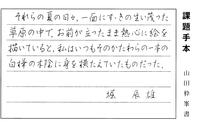 それらの夏の日々、一面にすすきの生い茂った
草原の中で、お前が立ったまま熱心に絵を
描いていると、私はいつもその傍らの一本の
白樺の木蔭に身を横たえていたものだった。
堀 辰雄
課題手本
山田 書